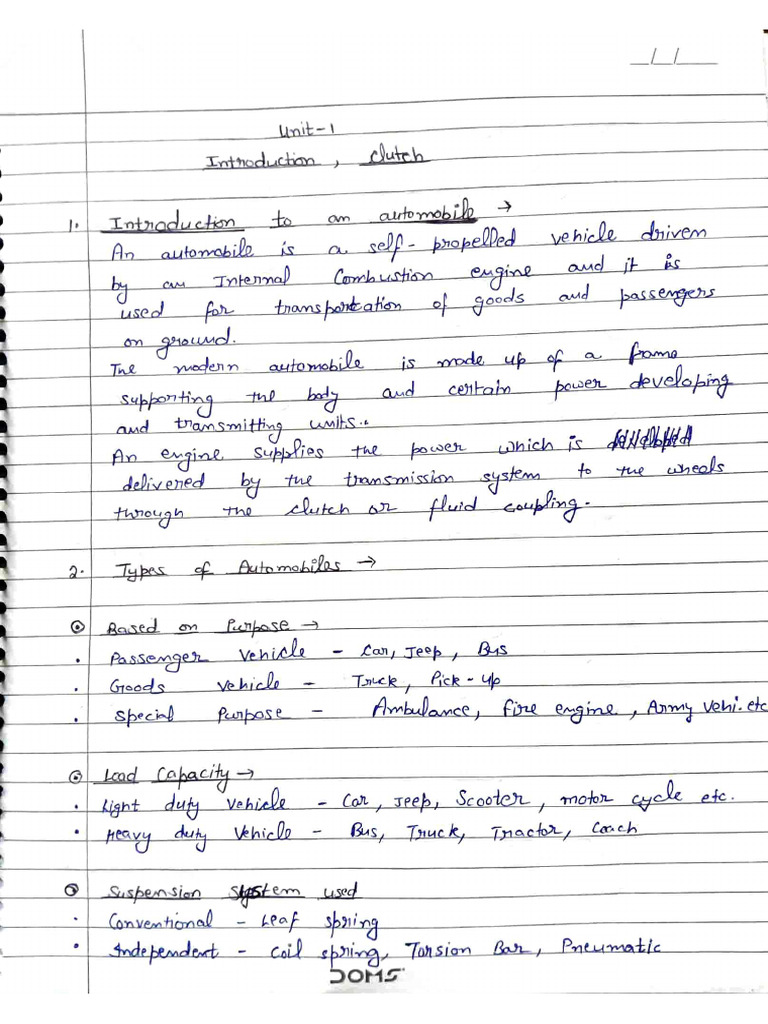 __/__/____
Unit-1
Introduction, Clutch
1. Introduction to an automobile →
An automobile is a self-propelled vehicle driven
by an Internal Combustion engine and it is
used for transportation of goods and passengers
on ground.
The modern automobile is made up of a frame
supporting the body and certain power developing
and transmitting units.
An engine supplies the power which is
delivered by the transmission system to the wheels
through the clutch or fluid coupling.
2. Types of Automobiles →
⊙ Based on Purpose →
• Passenger vehicle - Car, Jeep, Bus
• Goods vehicle - Truck, Pick-up
• Special Purpose - Ambulance, fire engine, Army vehi. etc
⊙ Load Capacity →
• Light duty vehicle - Car, Jeep, Scooter, motor cycle etc.
• Heavy duty vehicle - Bus, Truck, Tractor, Coach
⊙ Suspension System used
• Conventional - Leaf spring
• Independent - coil spring, Torsion Bar, Pneumatic
DOMS